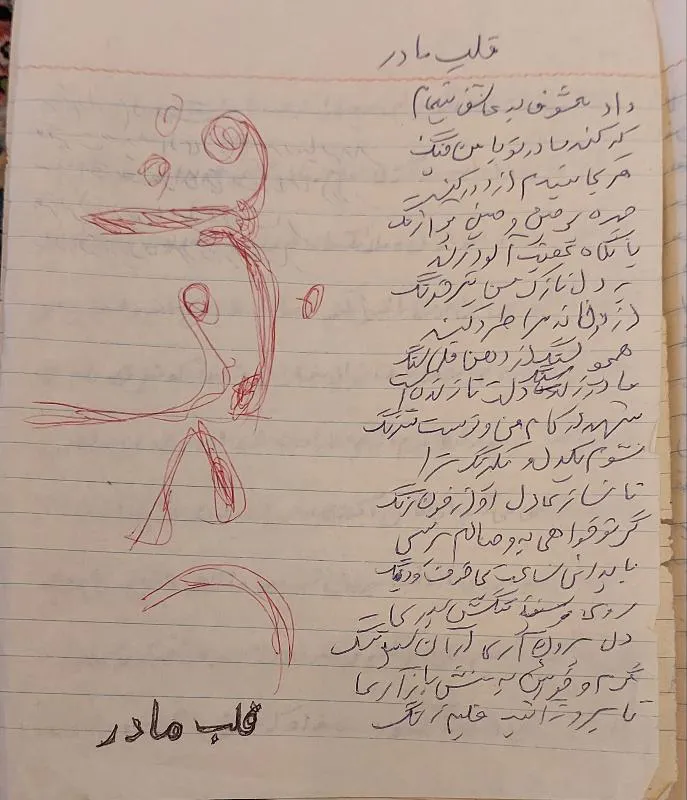 قلب مادر
داد معشوقه به عاشق پیغام
که کند مادر تو با من جنگ
هر کجا بیندم از دور کند
چهره پر چین و جبین پر آژنگ
با نگاه غضب آلود زند
بر دل نازک من تیر خدنگ
از در خانه مرا طرد کند
همچو سنگ از دهن قلماسنگ
مادر سنگ دلت تا زنده است
شهد در کام من و تست شرنگ
نشوم یکدل و یکرنگ ترا
تا نسازی دل او از خون رنگ
گر تو خواهی به وصالم برسی
باید این ساعت بی خوف و درنگ
روی و سینه تنگش بدری
دل برون آری از آن سینه تنگ
گرم و خونین به منش باز آری
تا برد ز آینه قلبم زنگ
قلب مادر